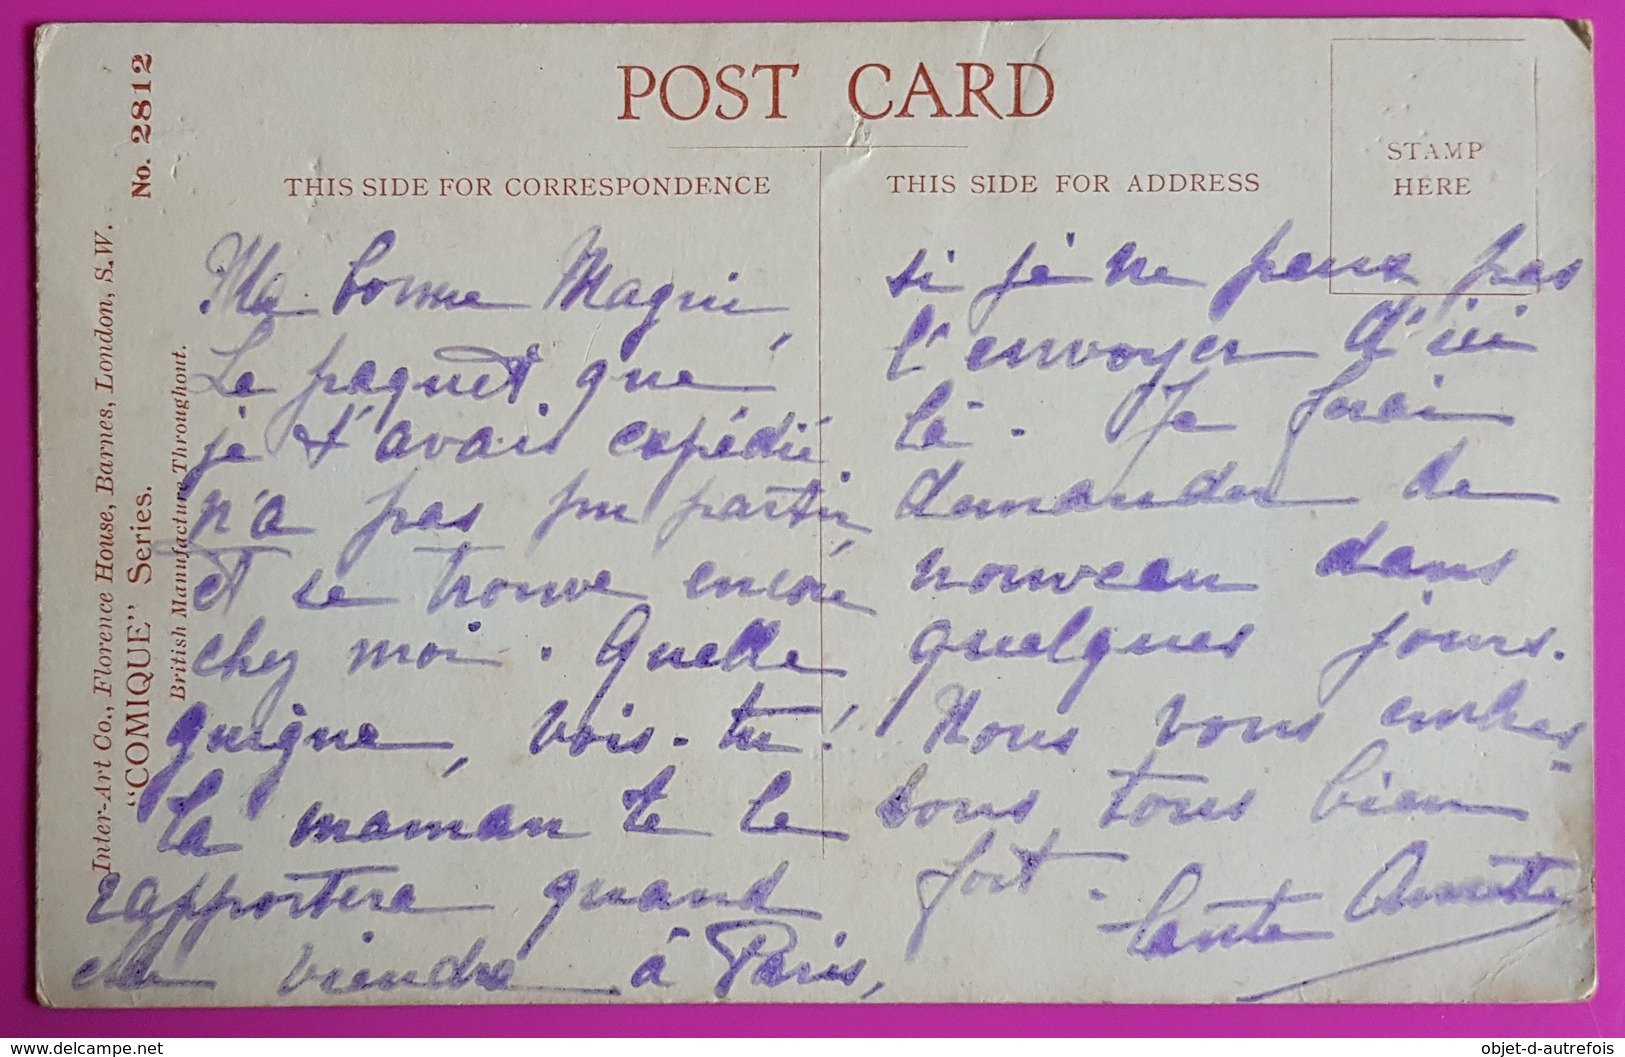 POST CARD
THIS SIDE FOR CORRESPONDENCE
THIS SIDE FOR ADDRESS
STAMP
HERE
Inter-Art Co., Florence House, Barnes, London, S.W.
"COMIQUE" Series.
No. 2812
British Manufacture Throughout.
Ma bonne Magui,
Le paquet que
je t'avais expédié
n'a pas pu partir
et se trouve encore
chez moi. Quelle
guigne, vois-tu!
Ta maman te le
rapportera quand
elle viendra à Paris,
si je ne peux pas
l'envoyer d'ici
là. Je ferai
demander de
nouveau dans
quelques jours.
Nous vous embras
sons tous bien
fort.
Tante Annette
www.delcampe.net
objet-d-autrefois